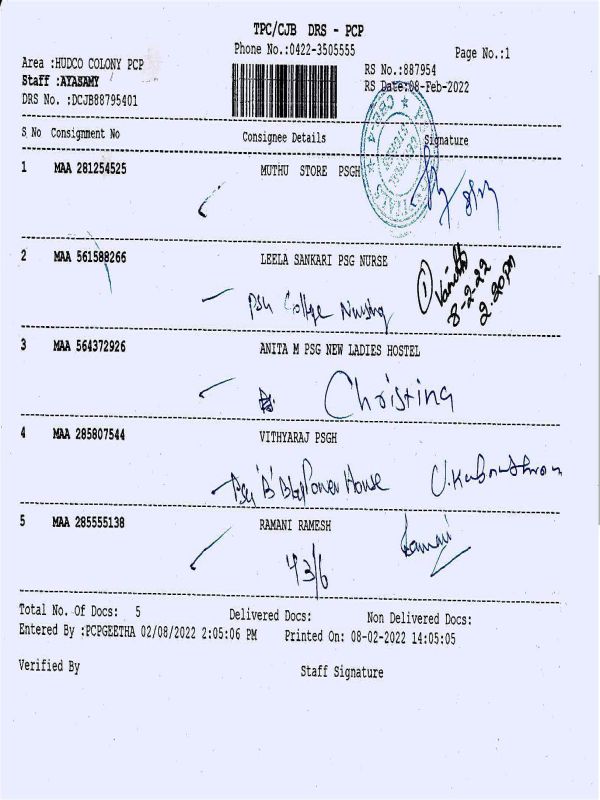 TPC/CJB DRS - PCP
Phone No.:0422-3505555
Page No.:1
Area :HUDCO COLONY PCP
RS No.:887954
Staff :AYASAMY
RS Date:08-Feb-2022
DRS No. :DCJB88795401
S No Consignment No Consignee Details Signature
1 MAA 281254525 MUTHU STORE PSGH
2 MAA 561588266 LEELA SANKARI PSG NURSE
PSG College Nursing
8-2-22
2.20pm
3 MAA 564372926 ANITA M PSG NEW LADIES HOSTEL
Christina
4 MAA 285807544 VITHYARAJ PSGH
PSG 'B' Power House
5 MAA 285555138 RAMANI RAMESH
Ramani
43/6
Total No. Of Docs: 5 Delivered Docs: Non Delivered Docs:
Entered By :PCPGEETHA 02/08/2022 2:05:06 PM Printed On: 08-02-2022 14:05:05
Verified By Staff Signature